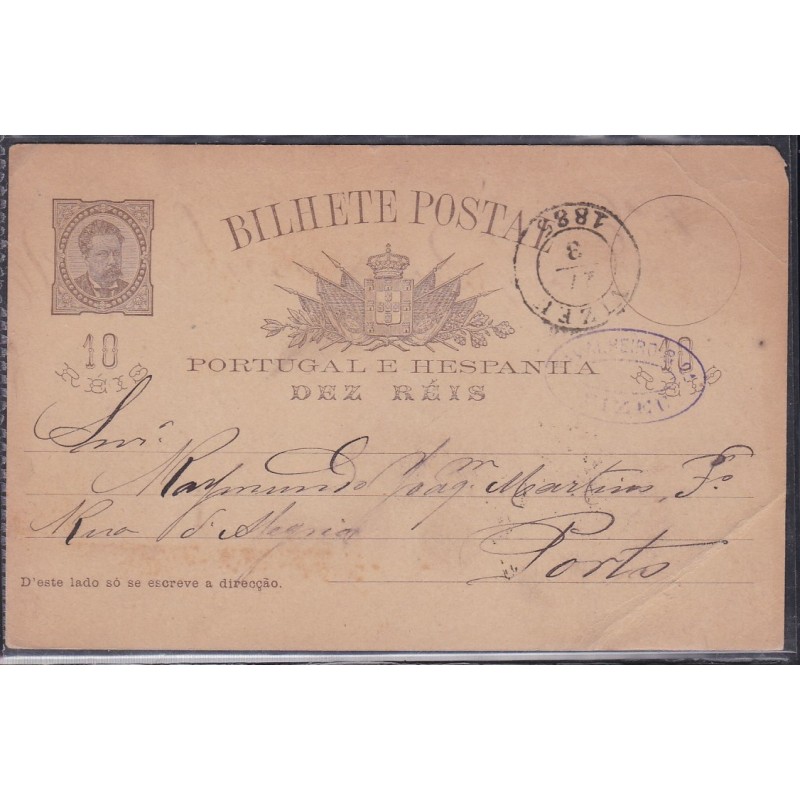 BILHETE POSTAL
1885
3
VIZEU
10
REIS
10
REIS
PORTUGAL E HESPANHA
DEZ RÉIS
VIZEU
Snr.
Raymundo Joaqm Martins, Fo
Rua d'Alegria
Porto
D'este lado só se escreve a direcção.